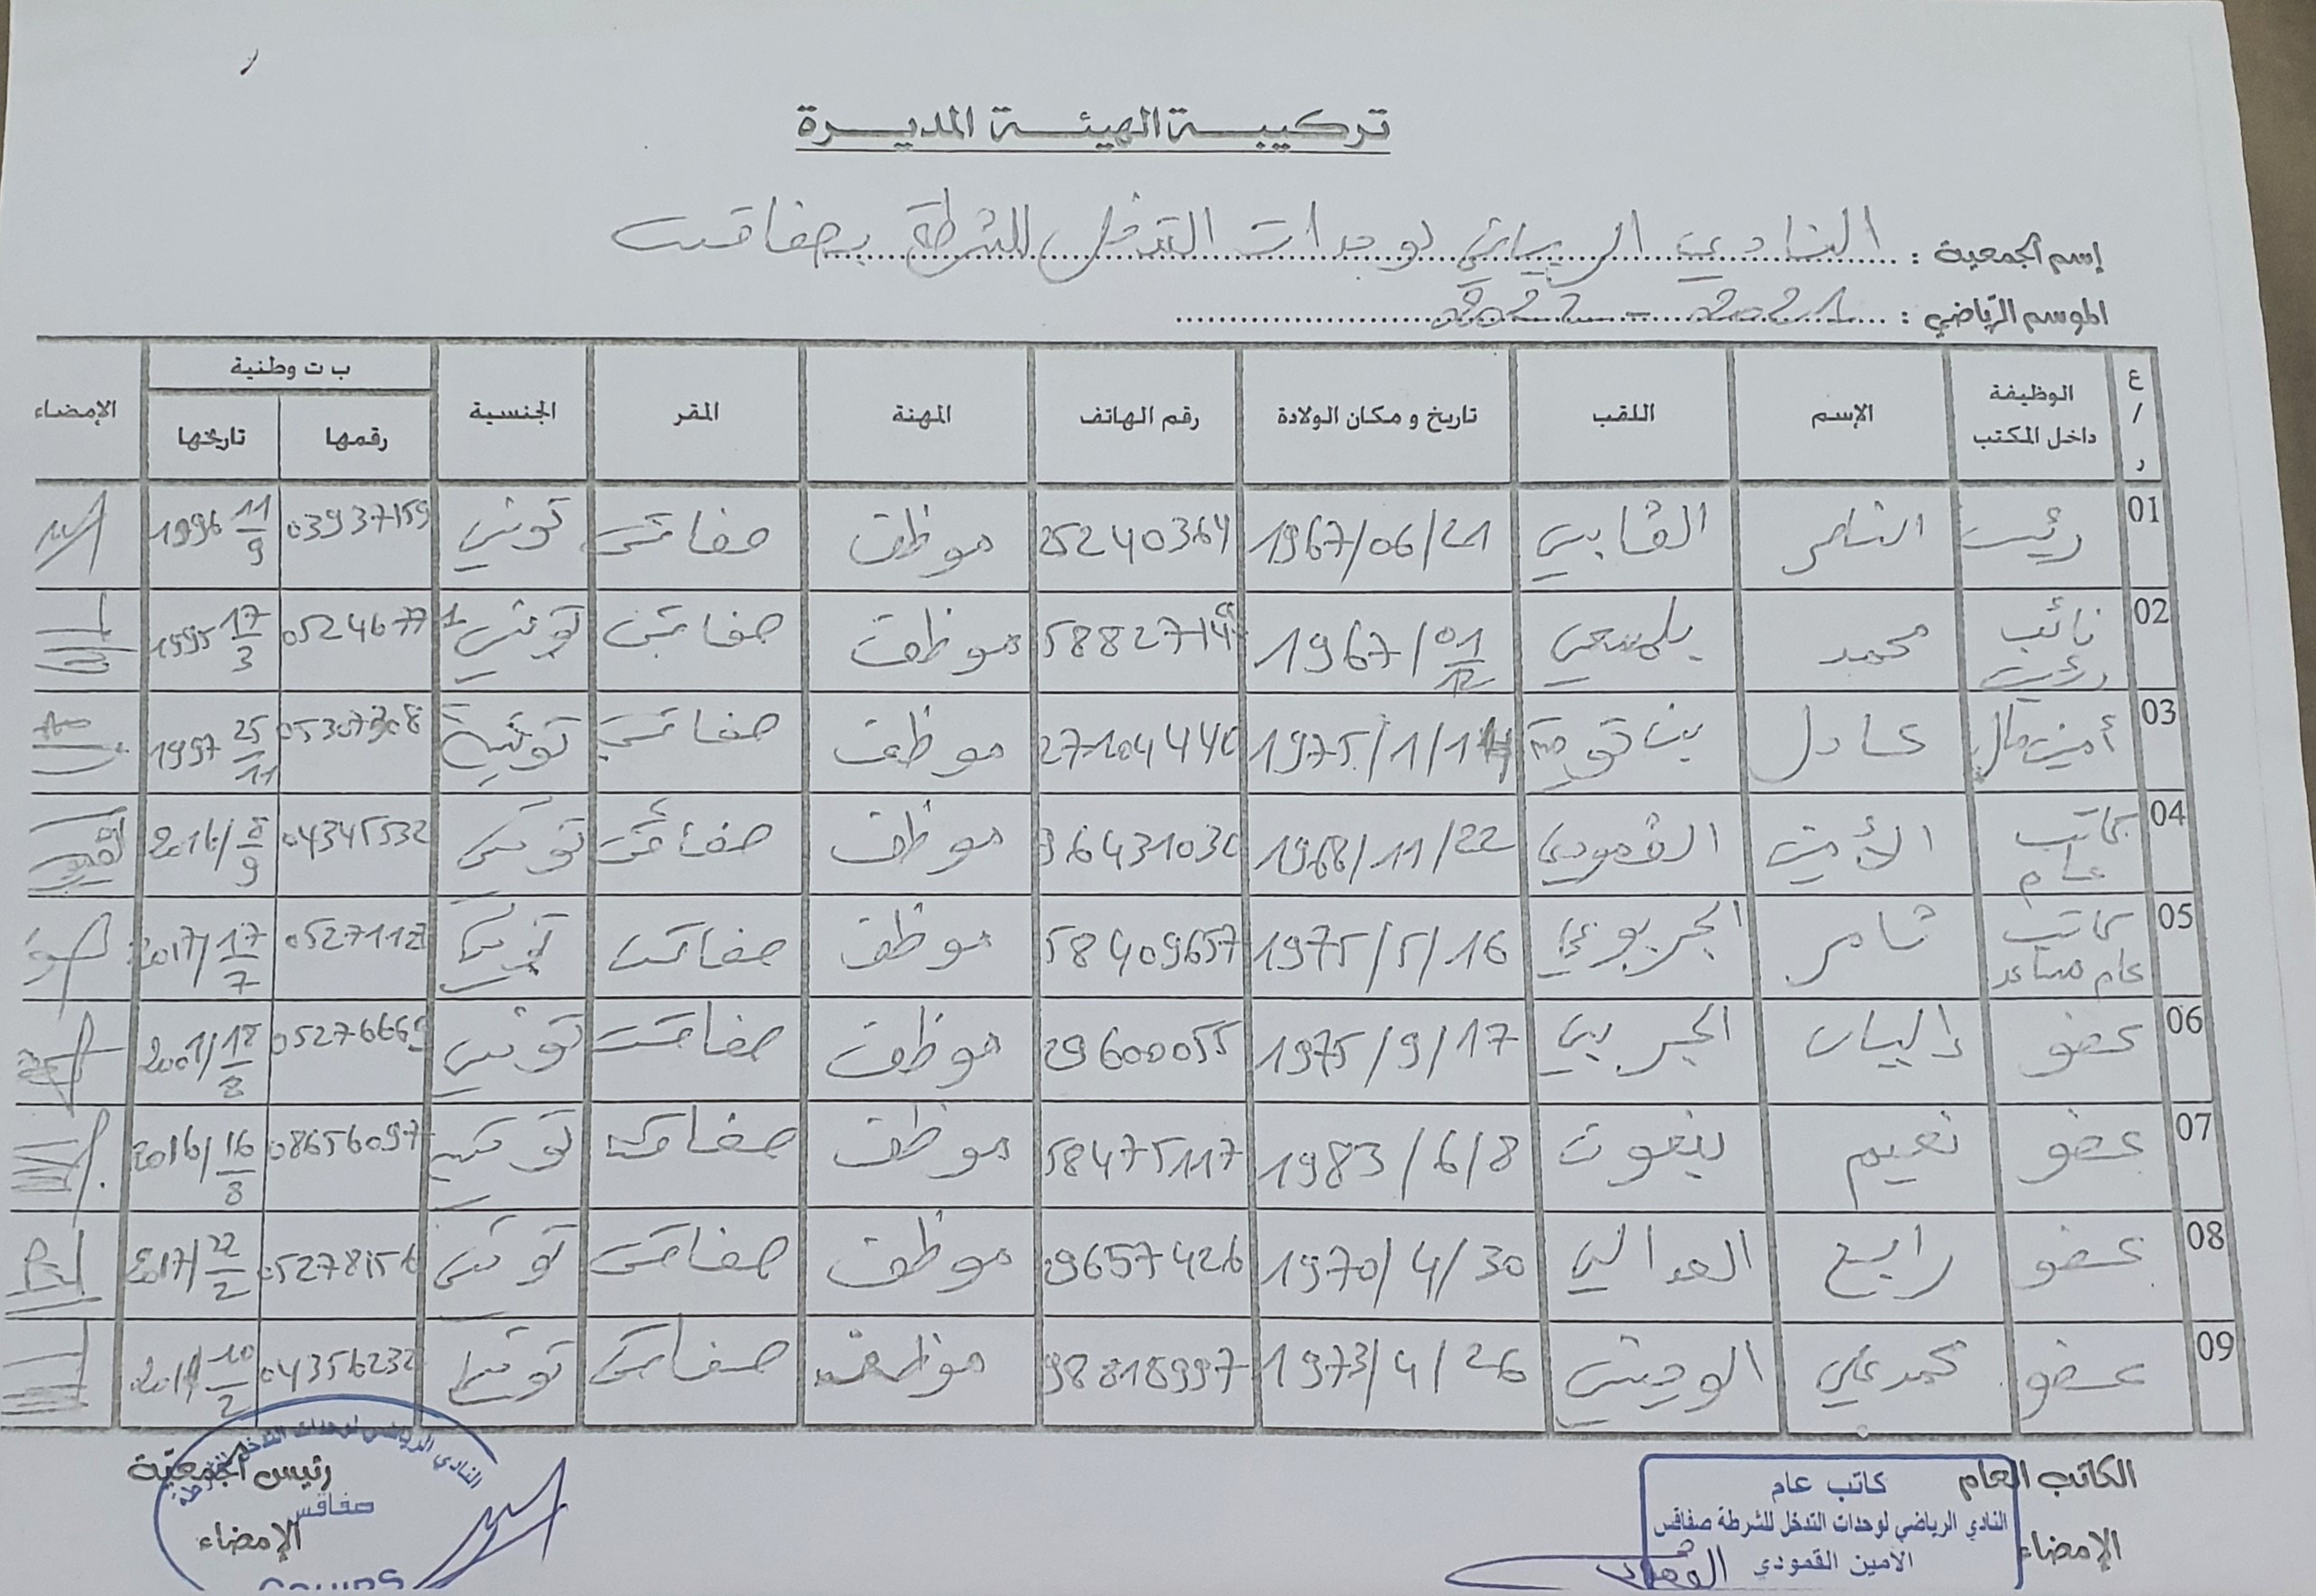 تركيبة الهيئة المديرة
إسم الجمعية : النادي الرياضي لوحدات التدخل للشرطة بصفاقس
الموسم الرياضي : 2021 - 2022
ع / ر الوظيفة داخل المكتب الإسم اللقب تاريخ و مكان الولادة رقم الهاتف المهنة المقر الجنسية ب ت وطنية رقمها تاريخها الإمضاء
01 رئيس الناصر القابسي 1967/06/21 25240364 موظف صفاقس تونسي 03937159 11/9 1996
02 نائب رئيس محمد بلمسعي 1967/01/12 موظف صفاقس تونسي 17/3 1995
03 أمين مال عادل بن تومية موظف صفاقس تونسية 25/11 1997
04 كاتب عام الأمين القمودي 1968/11/22 موظف صفاقس تونسي 04345532 2016/8/9
05 كاتب عام مساعد ثامر الجربوعي 1975/5/16 58409657 موظف صفاقس تونسي 2017/17/7
06 عضو إلياس الجربي 1975/9/17 29600055 موظف صفاقس تونسي 05276669 2001/18/8
07 عضو نعيم 1983/6/8 58475117 موظف صفاقس تونسي 08656097 2016/16/8
08 عضو رابح العدالي 1970/4/30 29657426 موظف صفاقس تونسي 05278156 2017/22/2
09 عضو محمد علي الوحيشي 1973/4/26 98818997 موظف صفاقس تونسي 04356232 10/2
الكاتب العام رئيس الجمعية
الإمضاء الإمضاء
كاتب عام
النادي الرياضي لوحدات التدخل للشرطة صفاقس
الأمين القمودي
النادي الرياضي لوحدات التدخل للشرطة
صفاقس